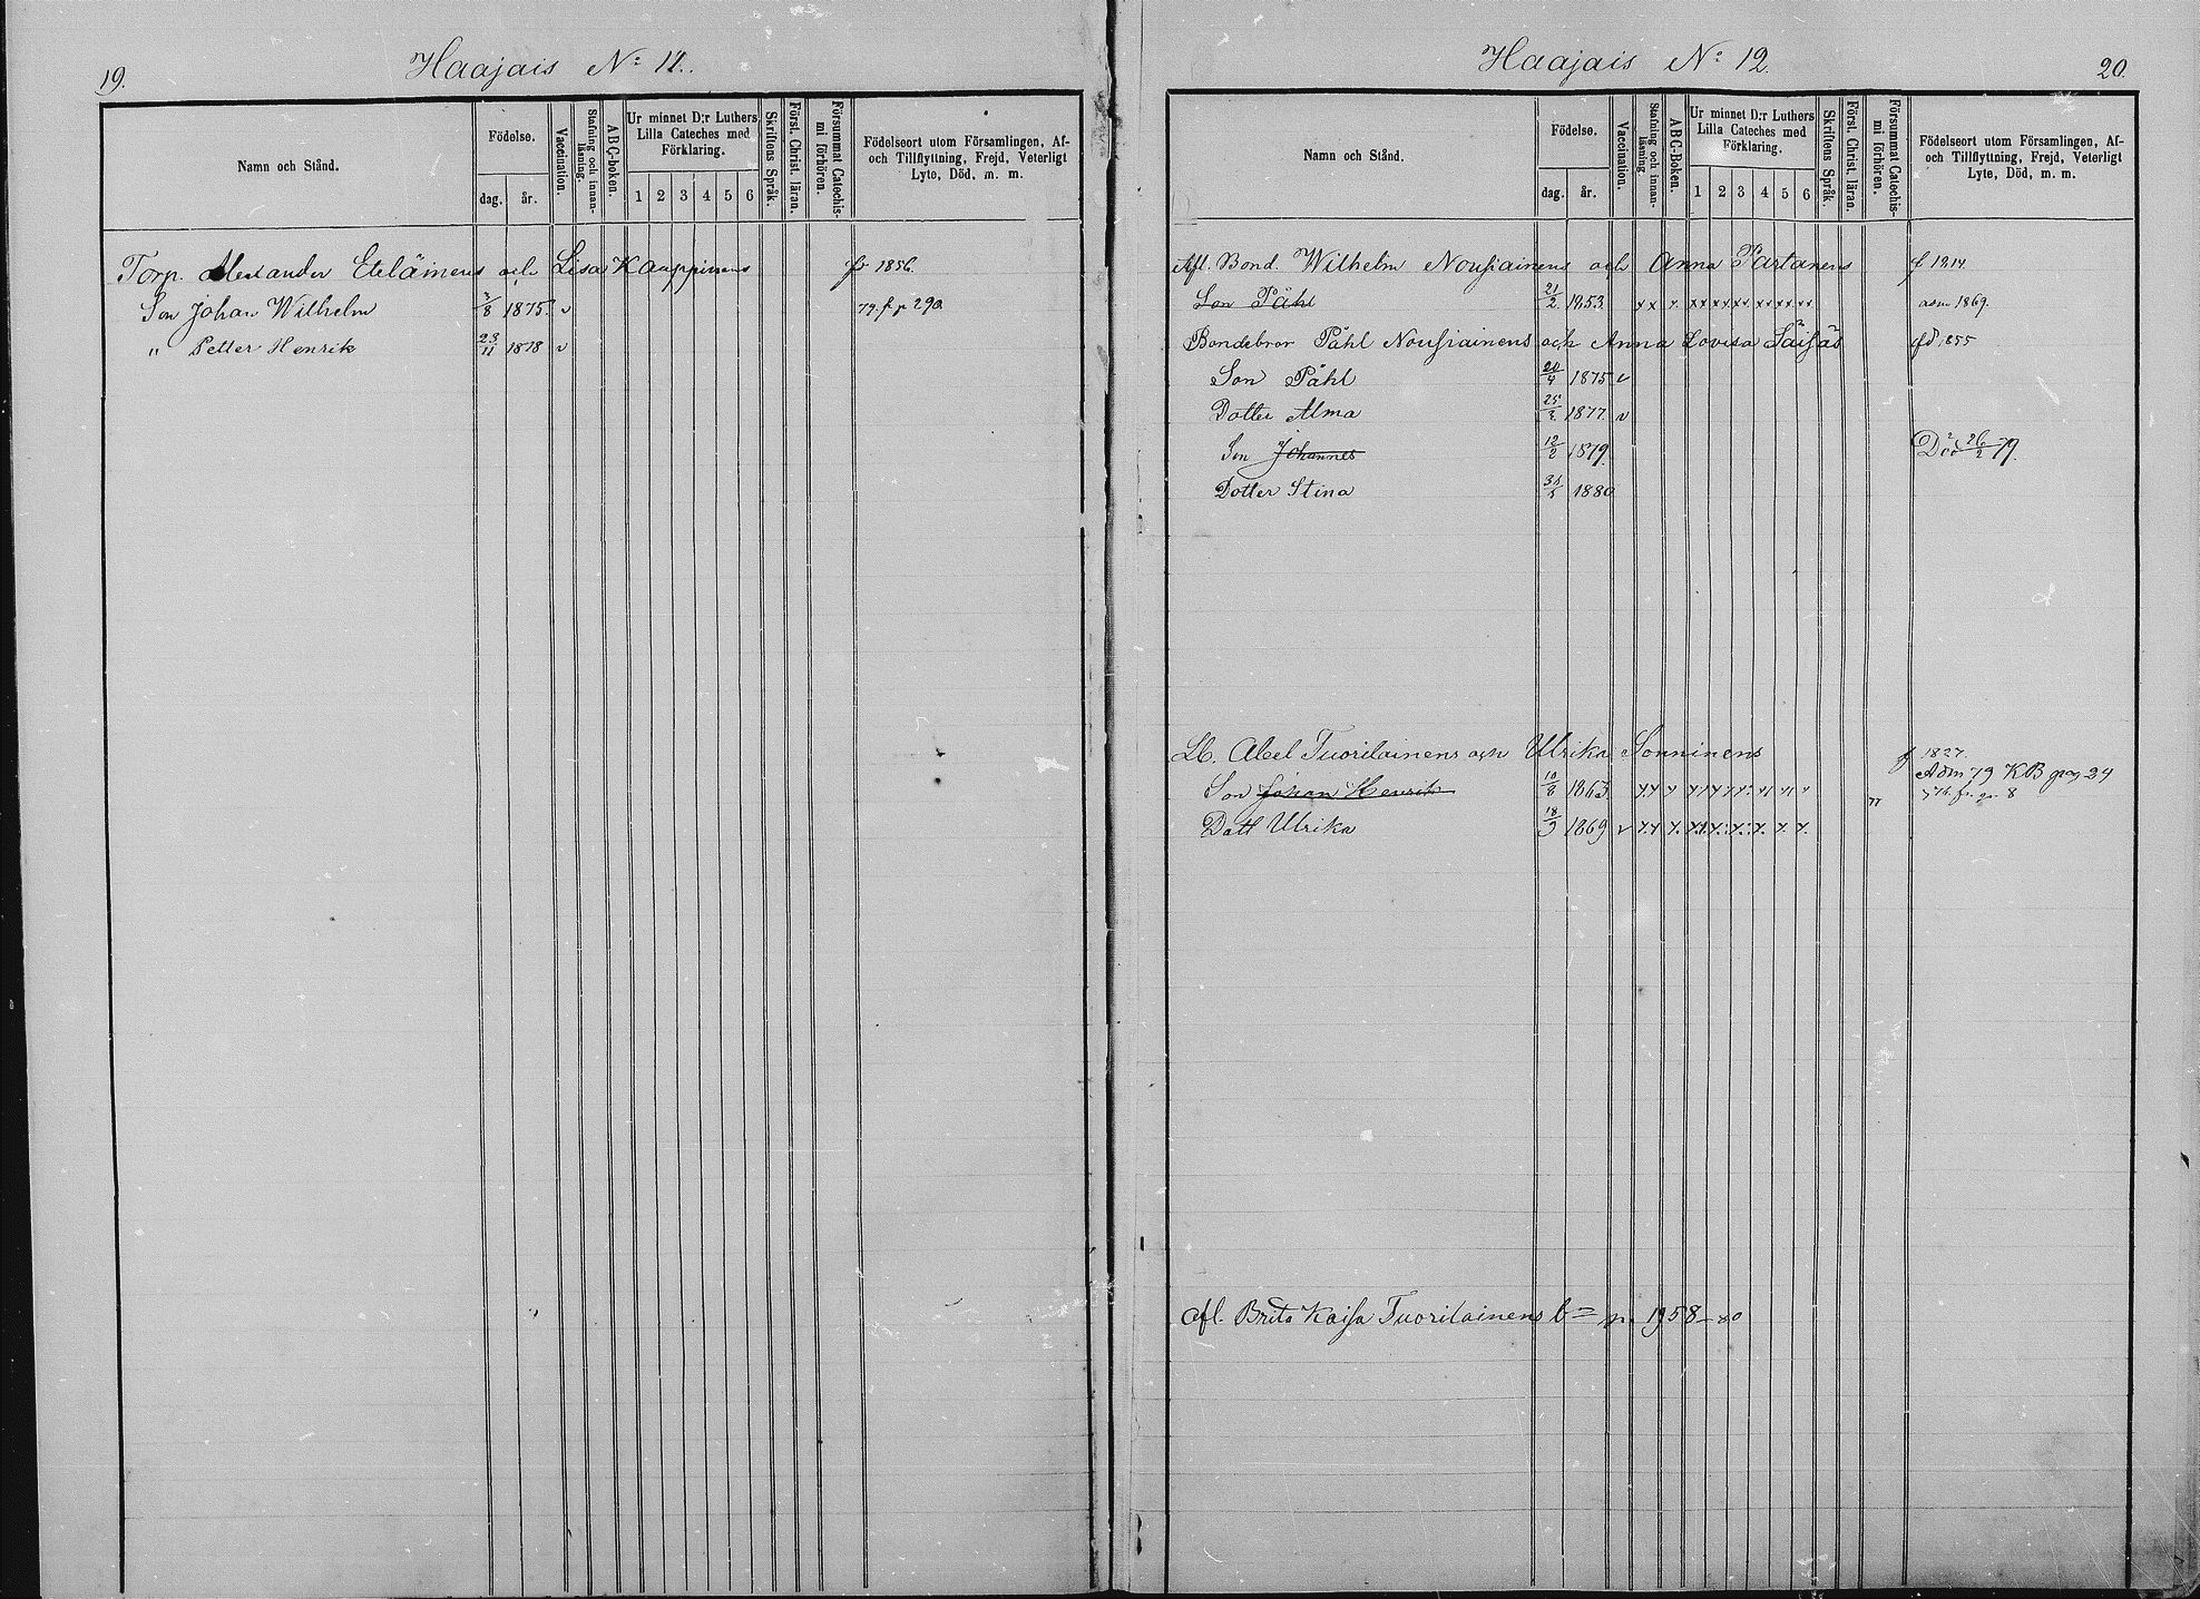 19.
Haajais No 11.
Namn och Stånd.
Födelse.
dag.
år.
Vaccination.
Stafning och innanläsning.
ABC-boken.
Ur minnet D:r Luthers Lilla Cateches med Förklaring.
1 2 3 4 5 6
Skriftens Språk.
Först. Christ. läran.
Försummat Catechismi förhören.
Födelseort utom Församlingen, Af- och Tillflyttning, Frejd, Veterligt Lyte, Död, m. m.
Torp. Alexander Eteläinens och Lisa Kauppinens 1856.
Son Johan Wilhelm 3/8 1875. v 79. fr p 290.
" Petter Henrik 23/11 1878 v
Haajais No 12.
20.
Namn och Stånd.
Födelse.
dag.
år.
Vaccination.
Stafning och innanläsning
ABC-Boken.
Ur minnet D:r Luthers Lilla Cateches med Förklaring.
1 2 3 4 5 6
Skriftens Språk.
Först. Christ. läran.
Försummat Catechismi förhören.
Födelseort utom Församlingen, Af- och Tillflyttning, Frejd, Veterligt Lyte, Död, m. m.
Afl. Bond. Wilhelm Nousiainens och Anna Partanens f 1814.
Son Påhl 21/2 1853. xx x. xx xx xx xx xx xx 1869.
Bondebror Påhl Nousiainens och Anna Lovisa Säisäs 1855
Son Påhl 20/4 1875 v
Dotter Alma 1877. v
Son Johannes 12/2 1879. Död 26/2 79.
Dotter Stina 1880
Lb. Abel Tuorilainens och Ulrika Sonninens f 1827.
Adm 79 KB pag 24
Son Johan Henrik 10/8 1863.
Dott Ulrika 18/9 1869 v
Afl. Brita Kaisa Tuorilainens